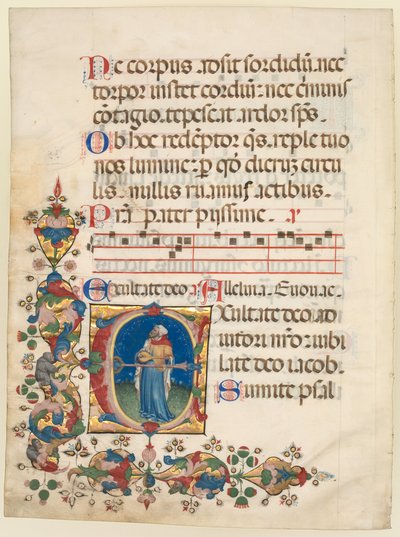 Ne corpus adsit sordidũ. nec
torpor instet cordiũ: nec c̃minis
cõtagio. tepescat ardor sp̃s.
Ob hoc redẽptor q̃s. reple tuo
nos lumine: p̱ qḋ dieruz circu
lis. nullis ruamus actibus.
Prã pater pijssime.
Exultate deo Alleluia. Euouae.
Exultate deo ad
iutori nr̃o: iubi
late deo iacob.
Sumite psal